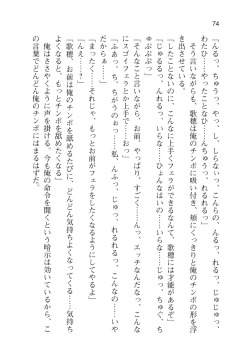 74
「んるっ、ちゅうっ、やっ、し、しらないっ、こんらの、んるっ、れるれるっ、
わたひ……やったことなひ……んちゅうっ、れるれるっ」
そう言いながらも、歌穂は俺のチンポに吸い付き、頬にくっきりと俺のチンポの形を浮
き出させている。
「したことないのに、こんなに上手くフェラができるなんて、歌穂には才能があるぞ」
「じゅるるっ、んれるっ、いらな……ひょんなはいの……いらな……じゅっ、ちゅぐ、ち
ゅぷぷぷっ」
そんなこと言いながら、お前、やっぱり、すごく……んっ、エッチなんだな、こんな
にスゴイフェラとか上手で……おっ」
「ふあっ、ち、ちがうのぉっ……私、んふっ、じゅっ、れるれるっ、こんなの……いや
だからぁ……」
「まったく……それじゃ、もっとお前がフェラをしたくなるようにしてやるよ」
「んえ……？」
「歌穂、お前は俺のチンポを舐めるたびに、どんどん気持ちよくなってくる……気持ち
よくなると、もっとチンポを舐めたくなる」
俺はささやくように声を掛ける。今も俺の命令を聞くという暗示は効いているから、こ
の言葉でどんどん俺のチンポにはまるはずだ。